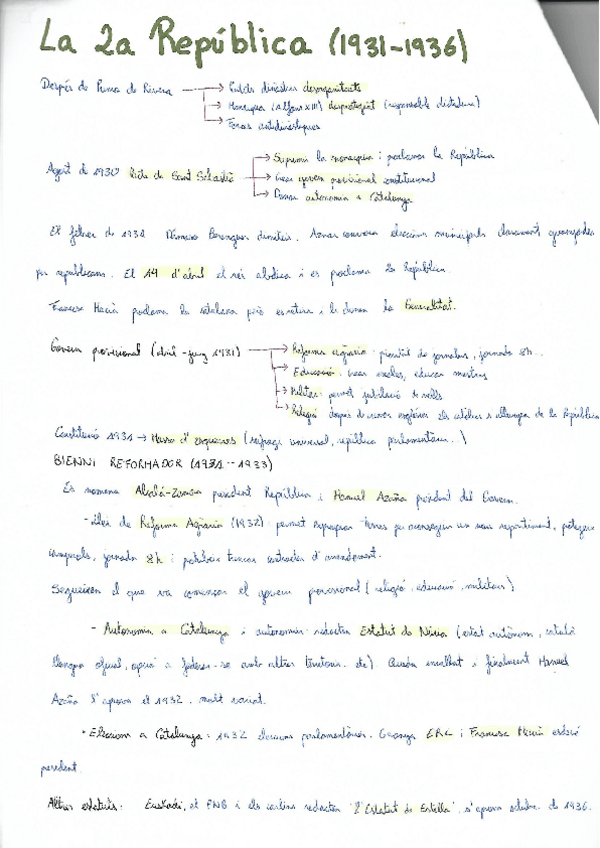 La 2a República (1931-1936)
Després de Primo de Rivera → Partits dinàstics desorganitzats
→ Monarquia (Alfons XIII) desprestigiat (responsable dictadura)
→ Forces antidinàstiques
Agost de 1930 Pacte de Sant Sebastià → Suprimir la monarquia i proclamar la República
→ Crear govern provisional constitucional
→ Donar autonomia a Catalunya
El febrer de 1931 Dámaso Berenguer dimiteix. Aznar convoca eleccions municipals clarament guanyades
per republicans. El 14 d'abril el rei abdica i es proclama la República.
Francesc Macià proclama la catalana però es retira i li donen la Generalitat.
Govern provisional (abril - juny 1931) → Reforma agrària: prioritat de jornalers, jornada 8h.
→ Educació: crear escoles, educar mestres
→ Militar: permet jubilació
→ Religió després de esglésies els catòlics s'allunyen de la República
Constitució 1931 → Massa d'esquerres (sufragi universal, república parlamentària.)
BIENNI REFORMADOR (1931 - 1933)
Es nomena Alcalá-Zamora president República i Manuel Azaña president del Govern.
- Llei de Reforma Agrària (1932): permet expropiar terres per aconseguir un nou repartiment, protegeix
, jornada 8h i contractes d'arrendament.
Segueixen el que va començar el govern provisional (religió, educació, militars)
- Autonomia a Catalunya i autonomia: redacten Estatut de Núria (estat autònom, català
llengua oficial, a federar-se amb altres territoris. etc). i finalment Manuel
Azaña l'aprova el 1932. molt variat.
- Eleccions a Catalunya: 1932 eleccions parlamentàries. Guanya ERC i Francesc Macià
president.
Altres estatuts: Euskadi, el PNB i els carlins redacten "l'Estatut de Estella", s'aprova octubre de 1936.